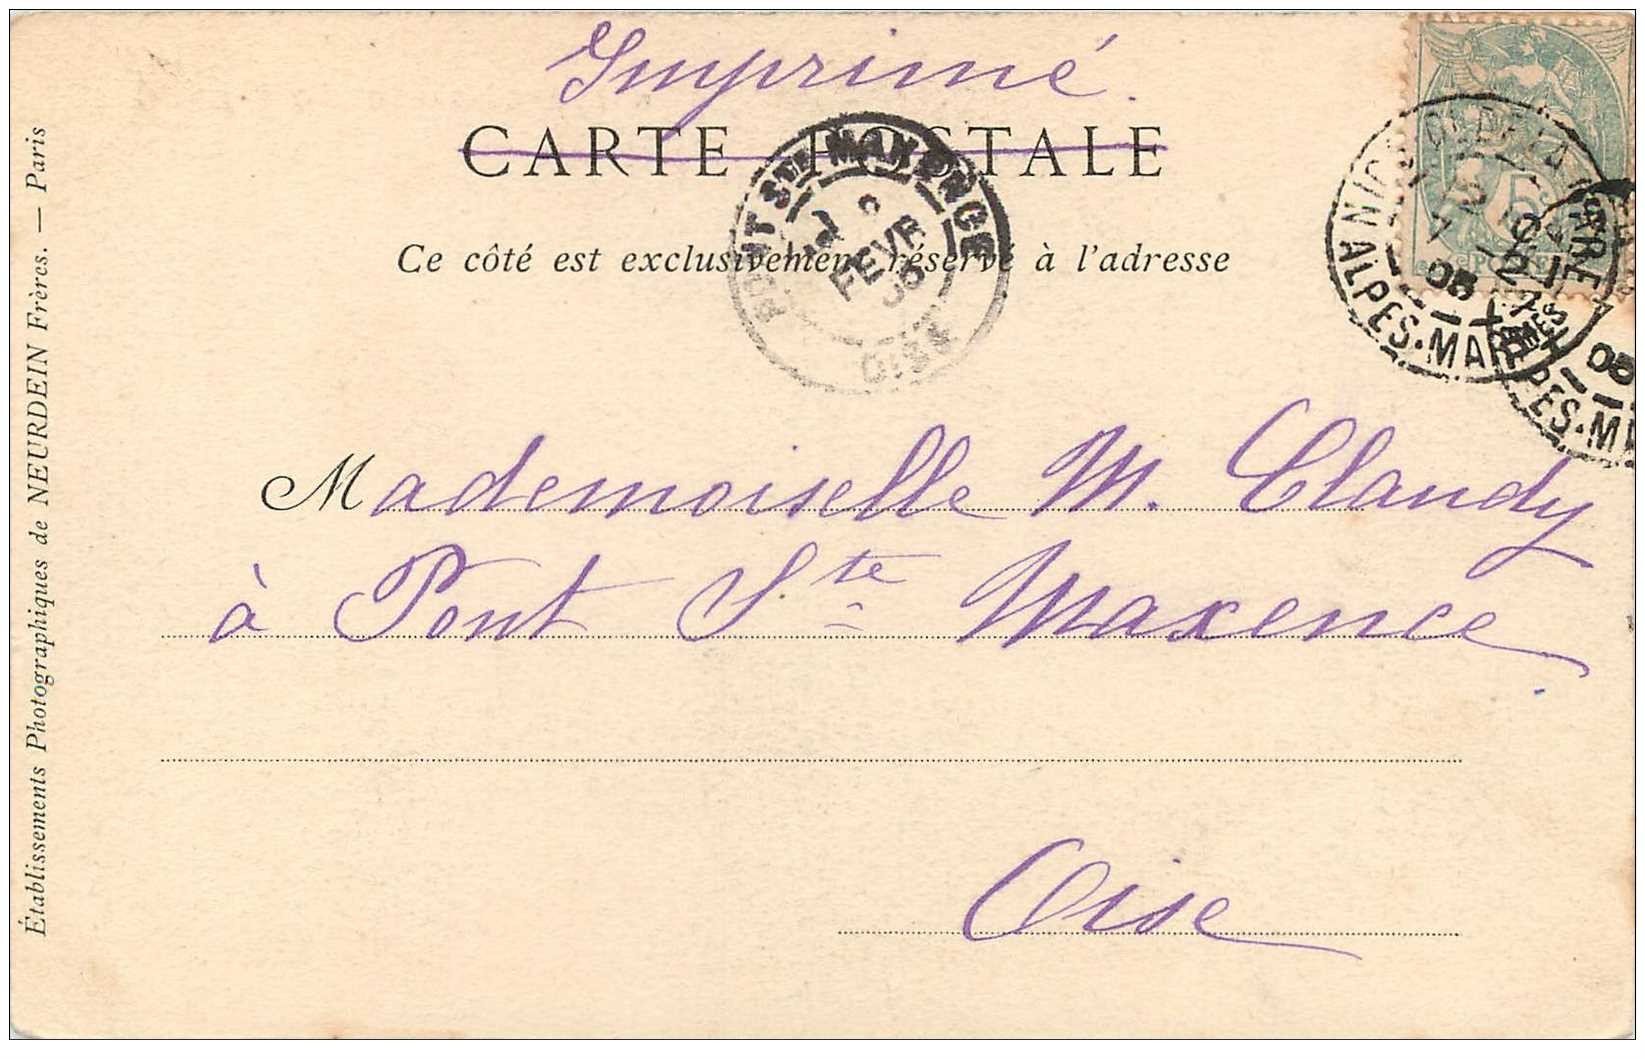 Imprimé.
CARTE POSTALE
Ce côté est exclusivement réservé à l'adresse
PONT STE MAXENCE
FEVR
05
OISE
5
POSTES
ALPES-MARITIMES
05
Mademoiselle M. Claudy
à Pont Ste Maxence.
Oise
Établissements Photographiques de NEURDEIN Frères. — Paris